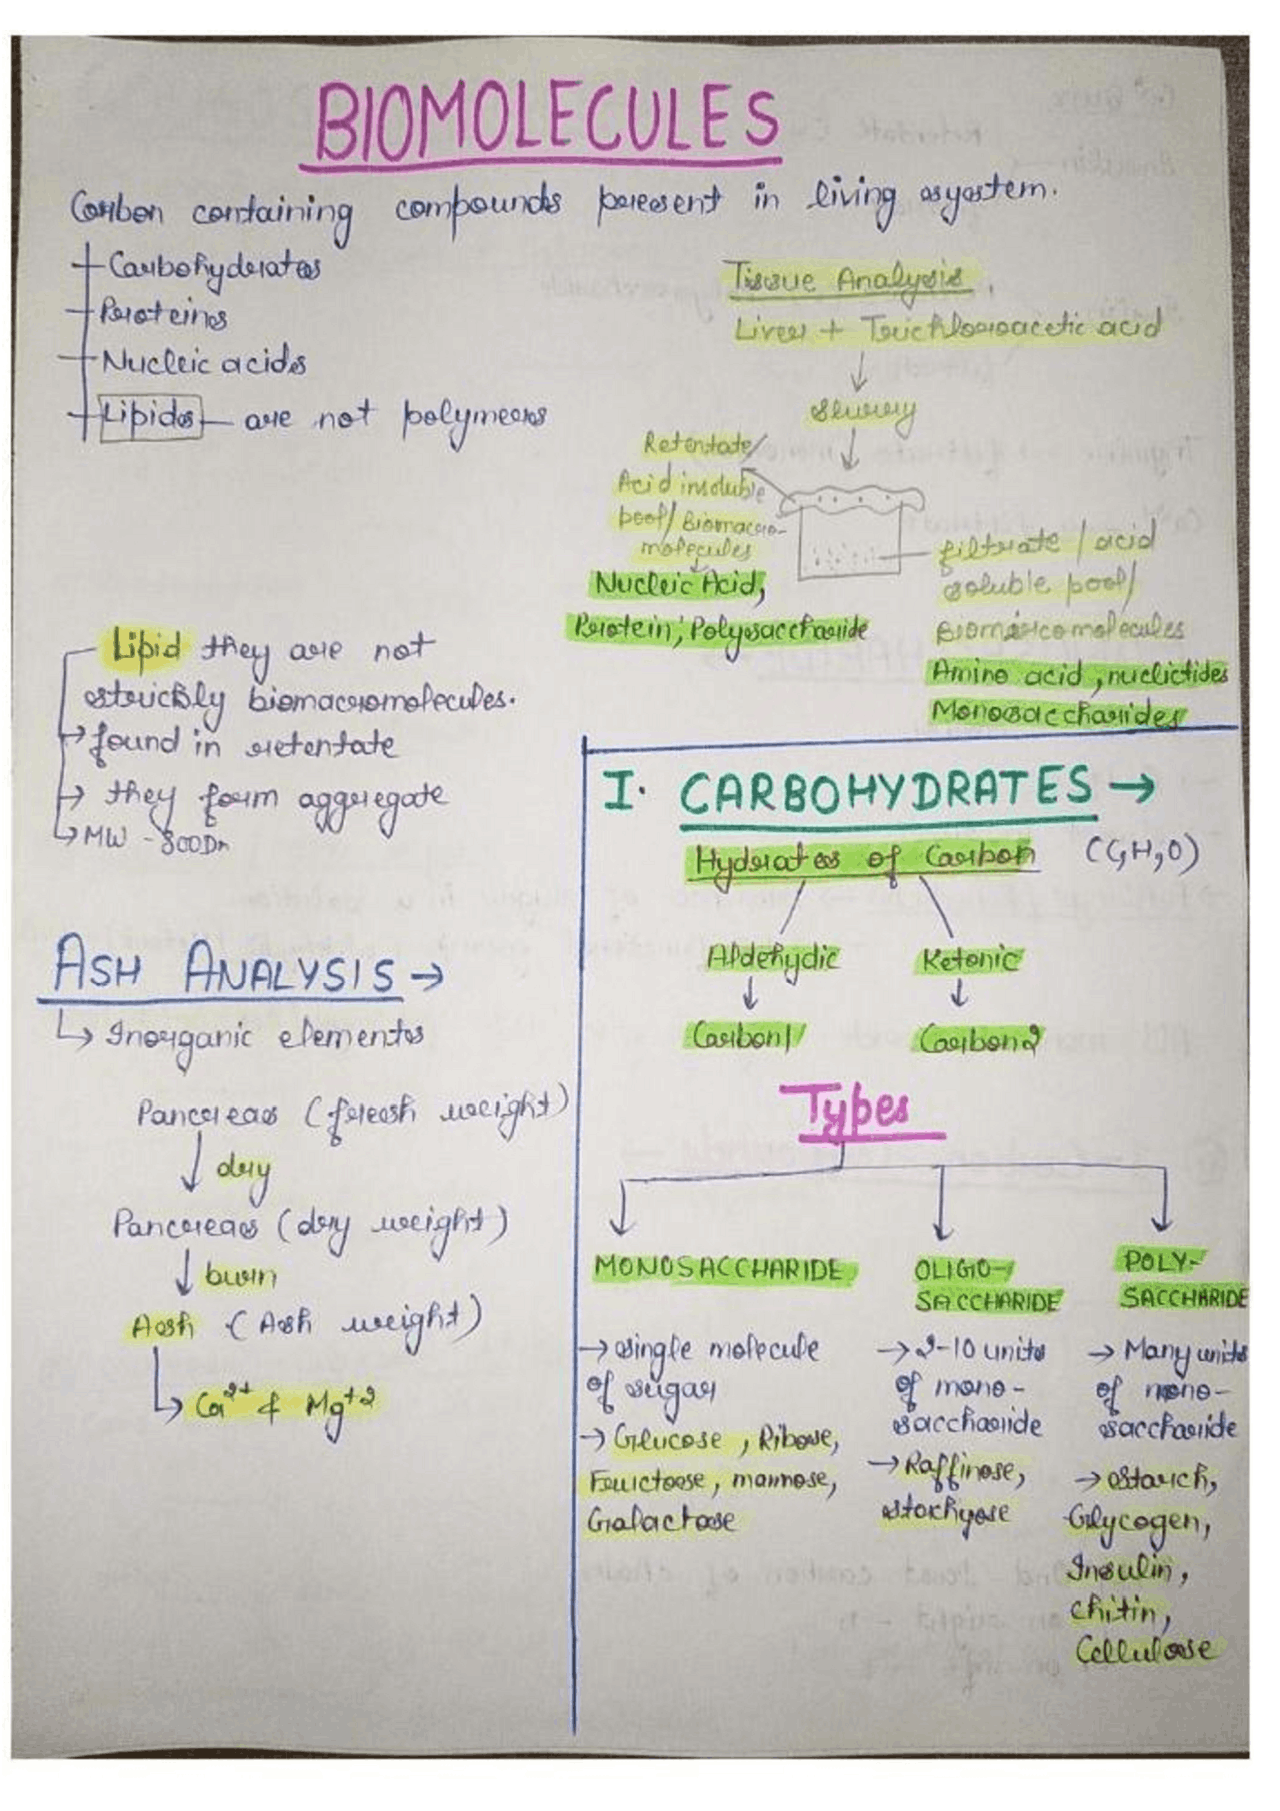 BIOMOLECULES
Carbon containing compounds present in living system.
Carbohydrates
Proteins
Nucleic acids
Lipids - are not polymers
Tissue Analysis
Liver + Trichloroacetic acid
↓
Slurry
↓
Retentate/
Acid insoluble
pool/Biomacro-
molecules
Nucleic Acid,
Protein, Polysaccharide
filtrate / acid
soluble pool/
Biomicromolecules
Amino acid, nuclictides
Monosaccharides
Lipid they are not
strickly biomacromolecules.
→ found in retentate
→ they form aggregate
→ MW - 800Da
ASH ANALYSIS →
↳ Inorganic elements
Pancreas (fresh weight)
↓ dry
Pancreas (dry weight)
↓ burn
Ash (Ash weight)
↳ Ca²⁺ & Mg⁺²
I. CARBOHYDRATES →
Hydrates of Carbon (C,H,O)
Aldehydic Ketonic
↓ ↓
Carbon1 Carbon2
Types
MONOSACCHARIDE
→ single molecule
of sugar
→ Glucose, Ribose,
Fructose, mannose,
Galactose
OLIGO-
SACCHARIDE
→ 2-10 units
of mono-
saccharide
→ Raffinose,
stachyose
POLY-
SACCHARIDE
→ Many units
of mono-
saccharide
→ starch,
Glycogen,
Insulin,
chitin,
Cellulose